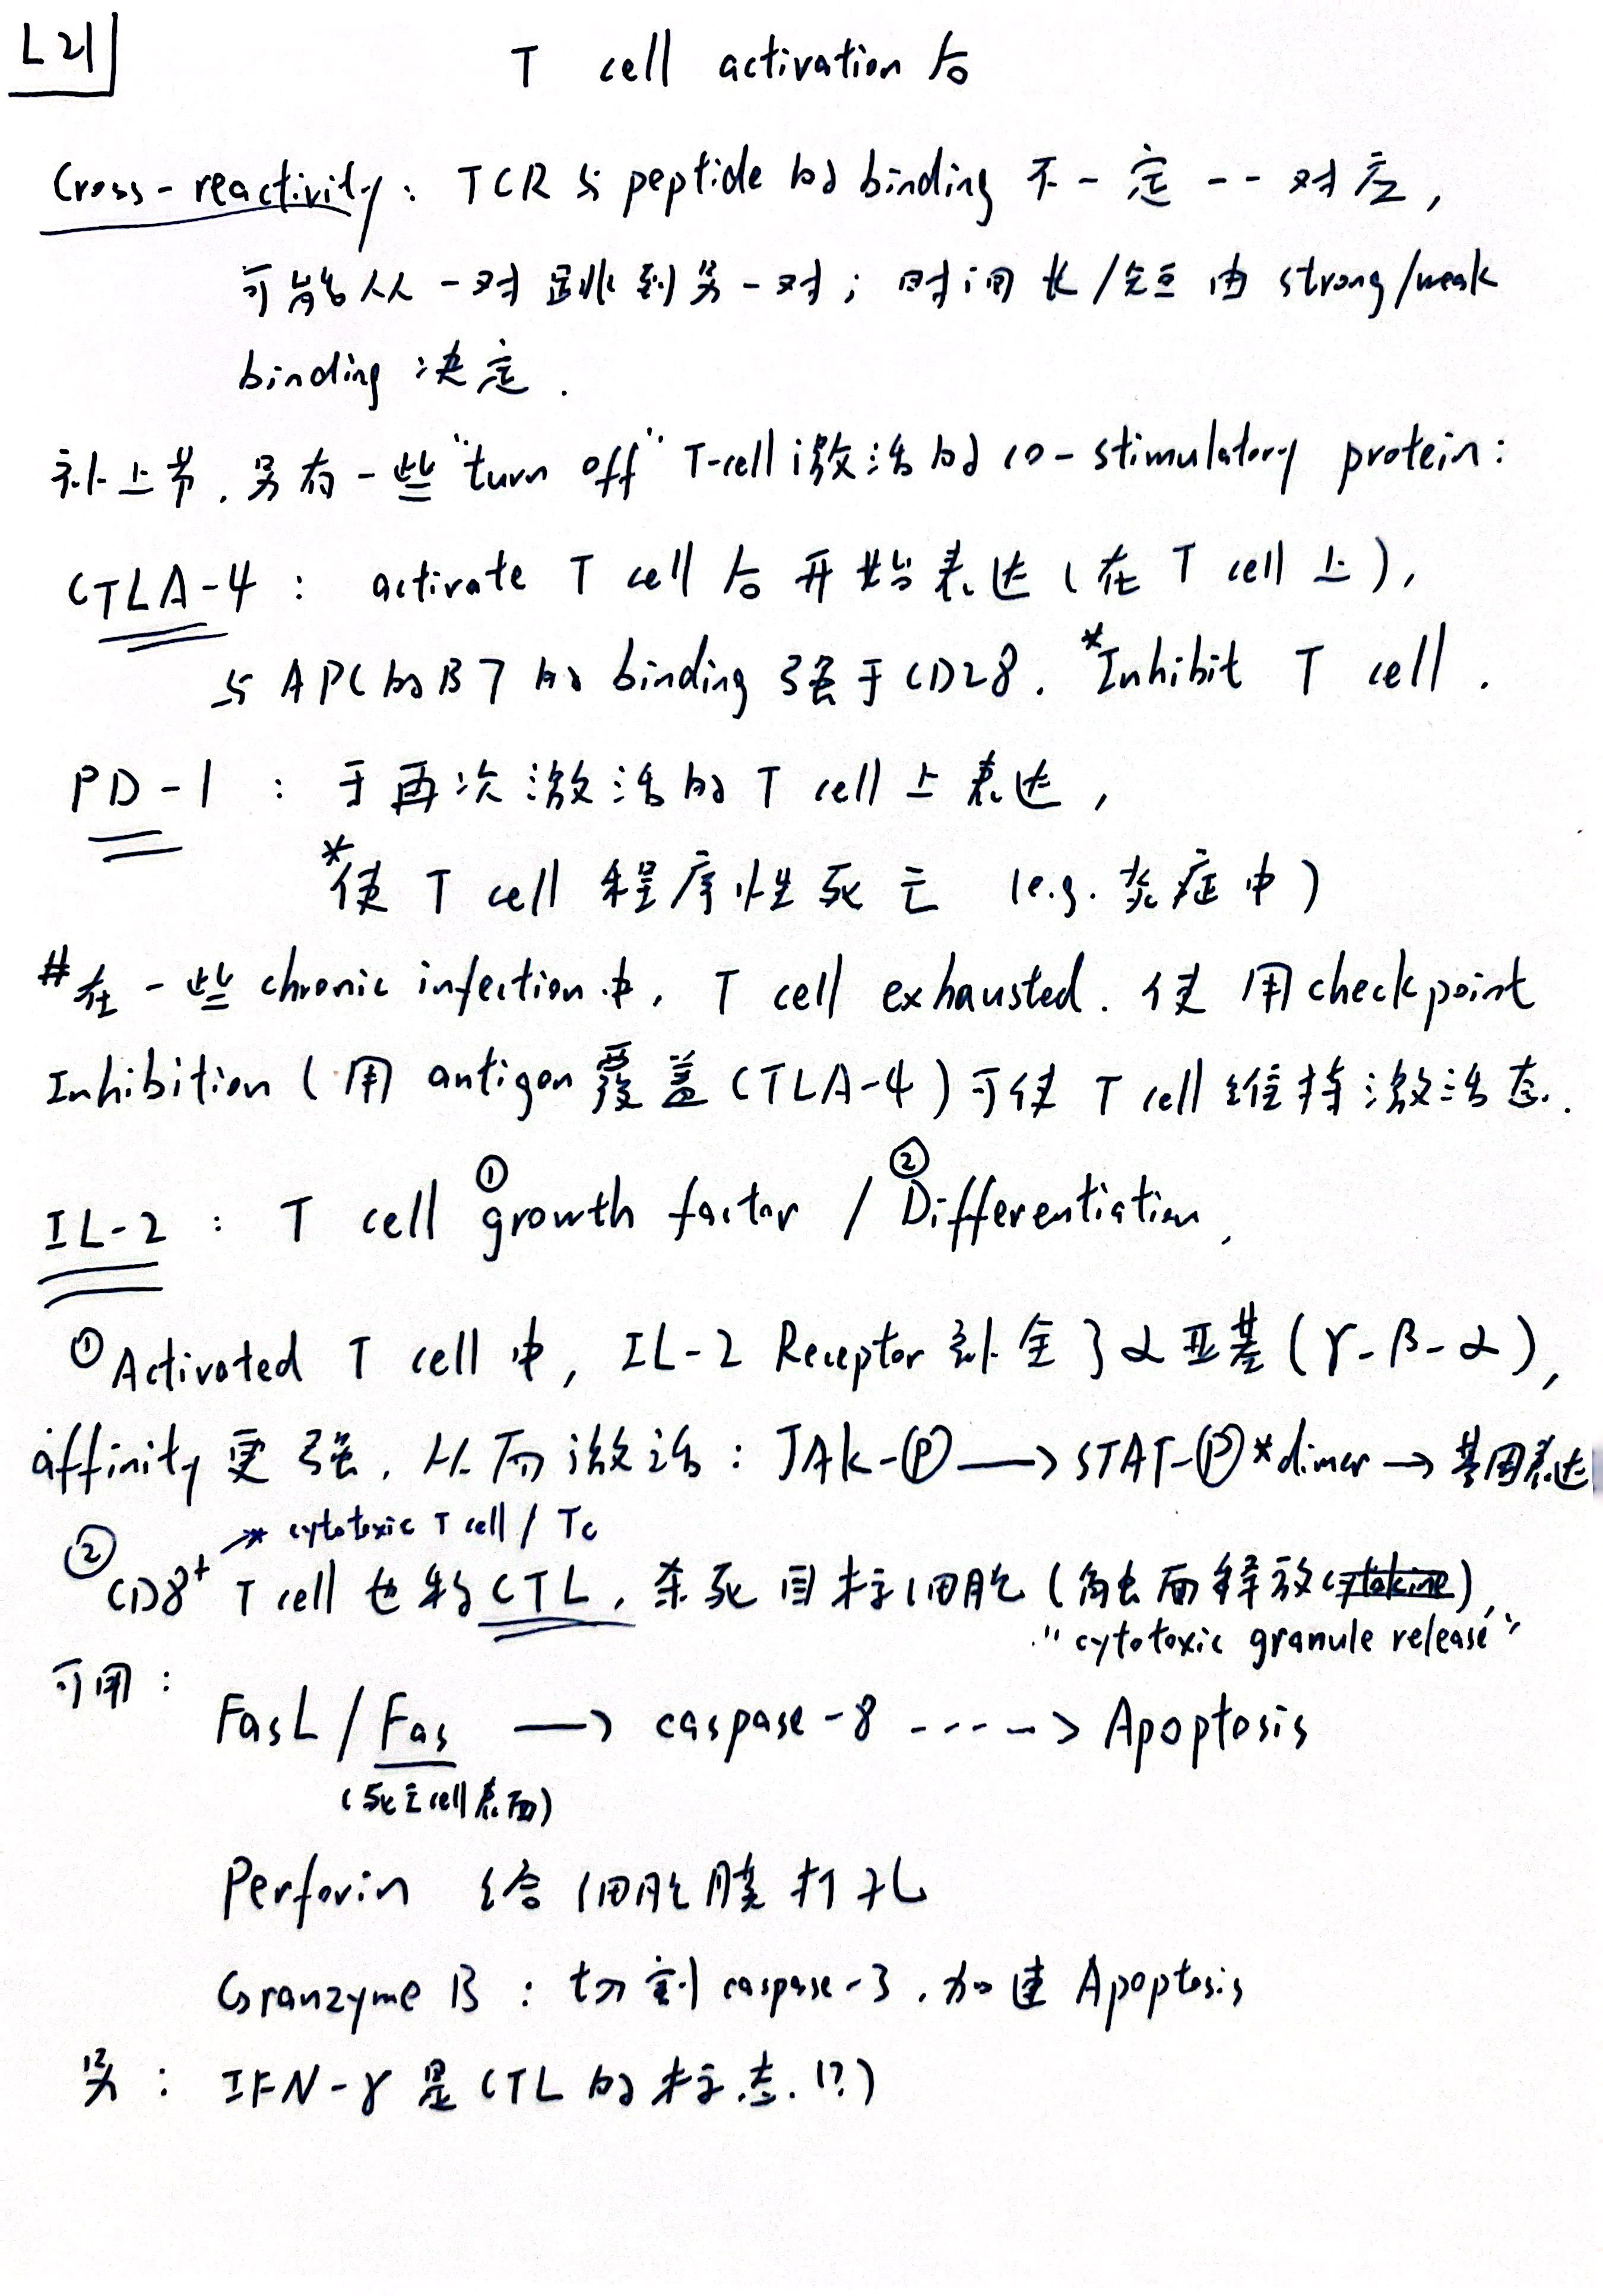 L21
T cell activation 后
Cross-reactivity: TCR 与 peptide 的 binding 不一定一一对应,
可能从一对跳到另一对; 时间长/短由 strong/weak
binding 决定.
补上节, 另有一些 "turn off" T-cell 激活的 co-stimulatory protein:
CTLA-4 : activate T cell 后开始表达 (在 T cell 上),
与 APC 的 B7 的 binding 强于 CD28. *Inhibit T cell.
PD-1 : 于再次激活的 T cell 上表达,
*使 T cell 程序性死亡 (e.g. 炎症中)
#在一些 chronic infection 中, T cell exhausted. 使用 checkpoint
Inhibition (用 antigen 覆盖 CTLA-4) 可使 T cell 维持激活态.
IL-2 : T cell ① growth factor / ② Differentiation,
① Activated T cell 中, IL-2 Receptor 补全了 α 亚基 (γ-β-α),
affinity 更强, 从而激活: JAK-Ⓟ → STAT-Ⓟ *dimer → 基因表达
cytotoxic T cell / Tc
② CD8+ T cell 也称 CTL, 杀死目标细胞 (触古而释放 cytokine),
"cytotoxic granule release"
可用:
FasL / Fas → caspase-8 ----> Apoptosis
(死亡 cell 表面)
Perforin 给细胞膜打孔
Granzyme B : 切割 caspase-3, 加速 Apoptosis
另 : IFN-γ 是 CTL 的标志. (?)